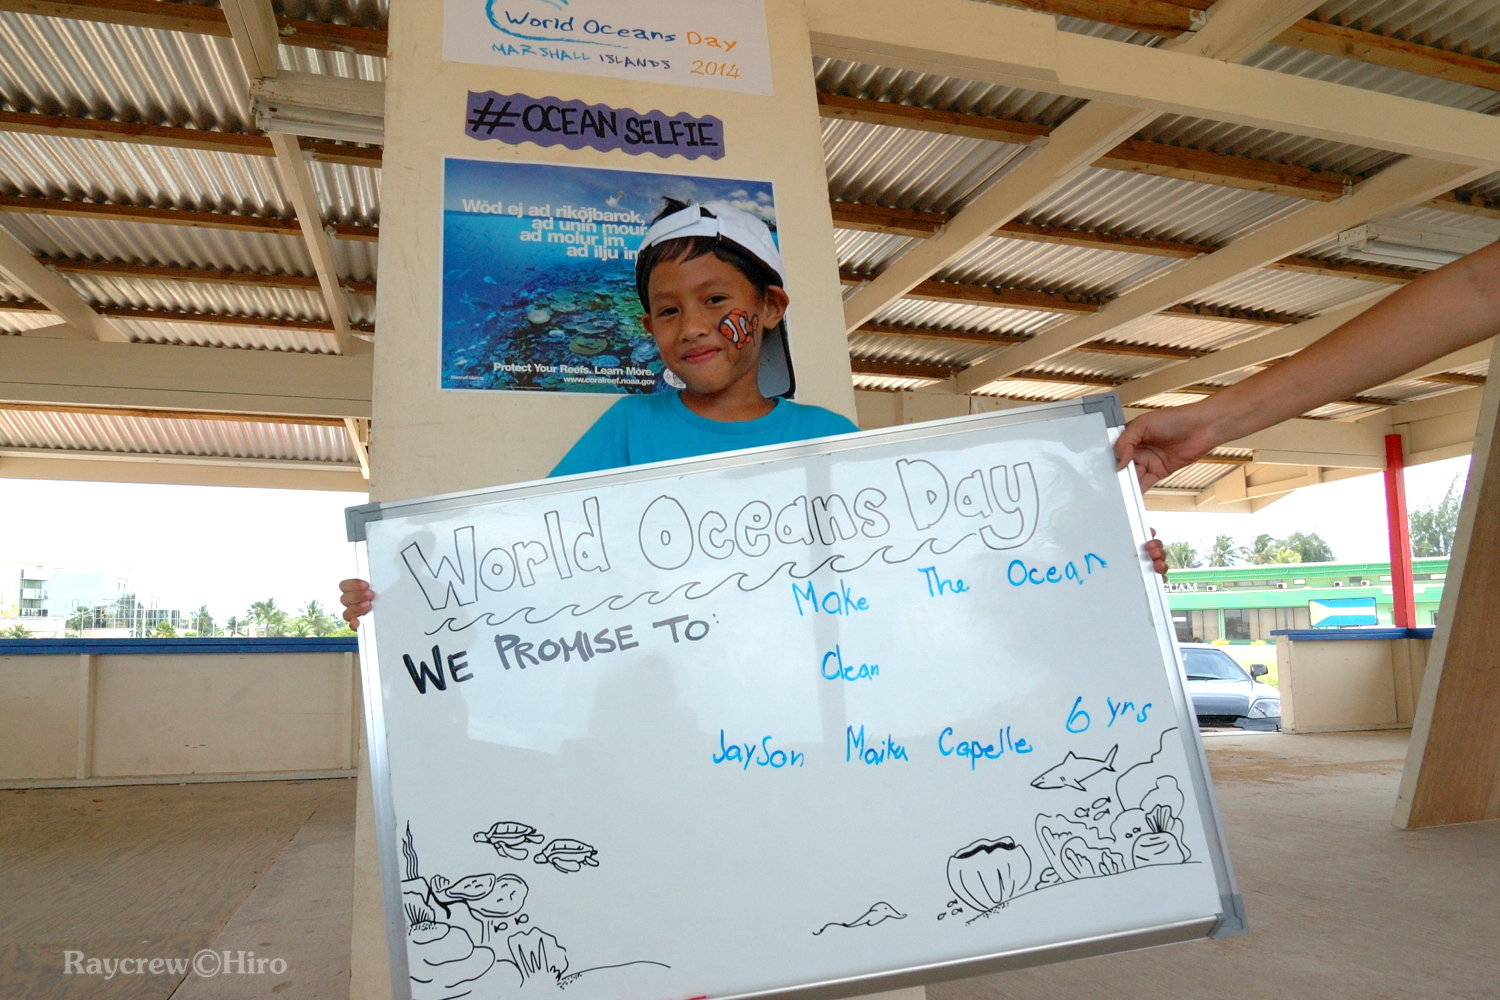 World Oceans Day
MARSHALL ISLANDS 2014
#OCEAN SELFIE
Wōd ej ad rikōjbarok,
ad unin mour
ad molur im
ad ilju in
Protect Your Reefs. Learn More.
www.coralreef.noaa.gov
World Oceans Day
WE PROMISE TO:
Make The Ocean
Clean
Jayson Maika Capelle 6 yrs
GUAM
Raycrew©Hiro